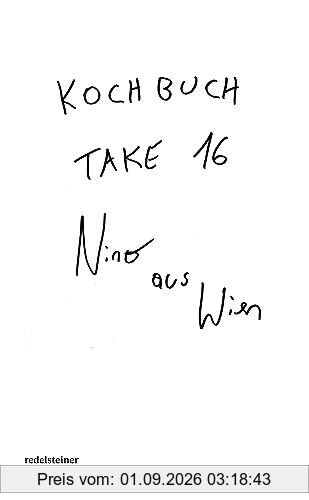 KOCHBUCH
TAKE 16
Nino
aus
Wien
redelsteiner
Preis vom: 01.09.2026 03:18:43